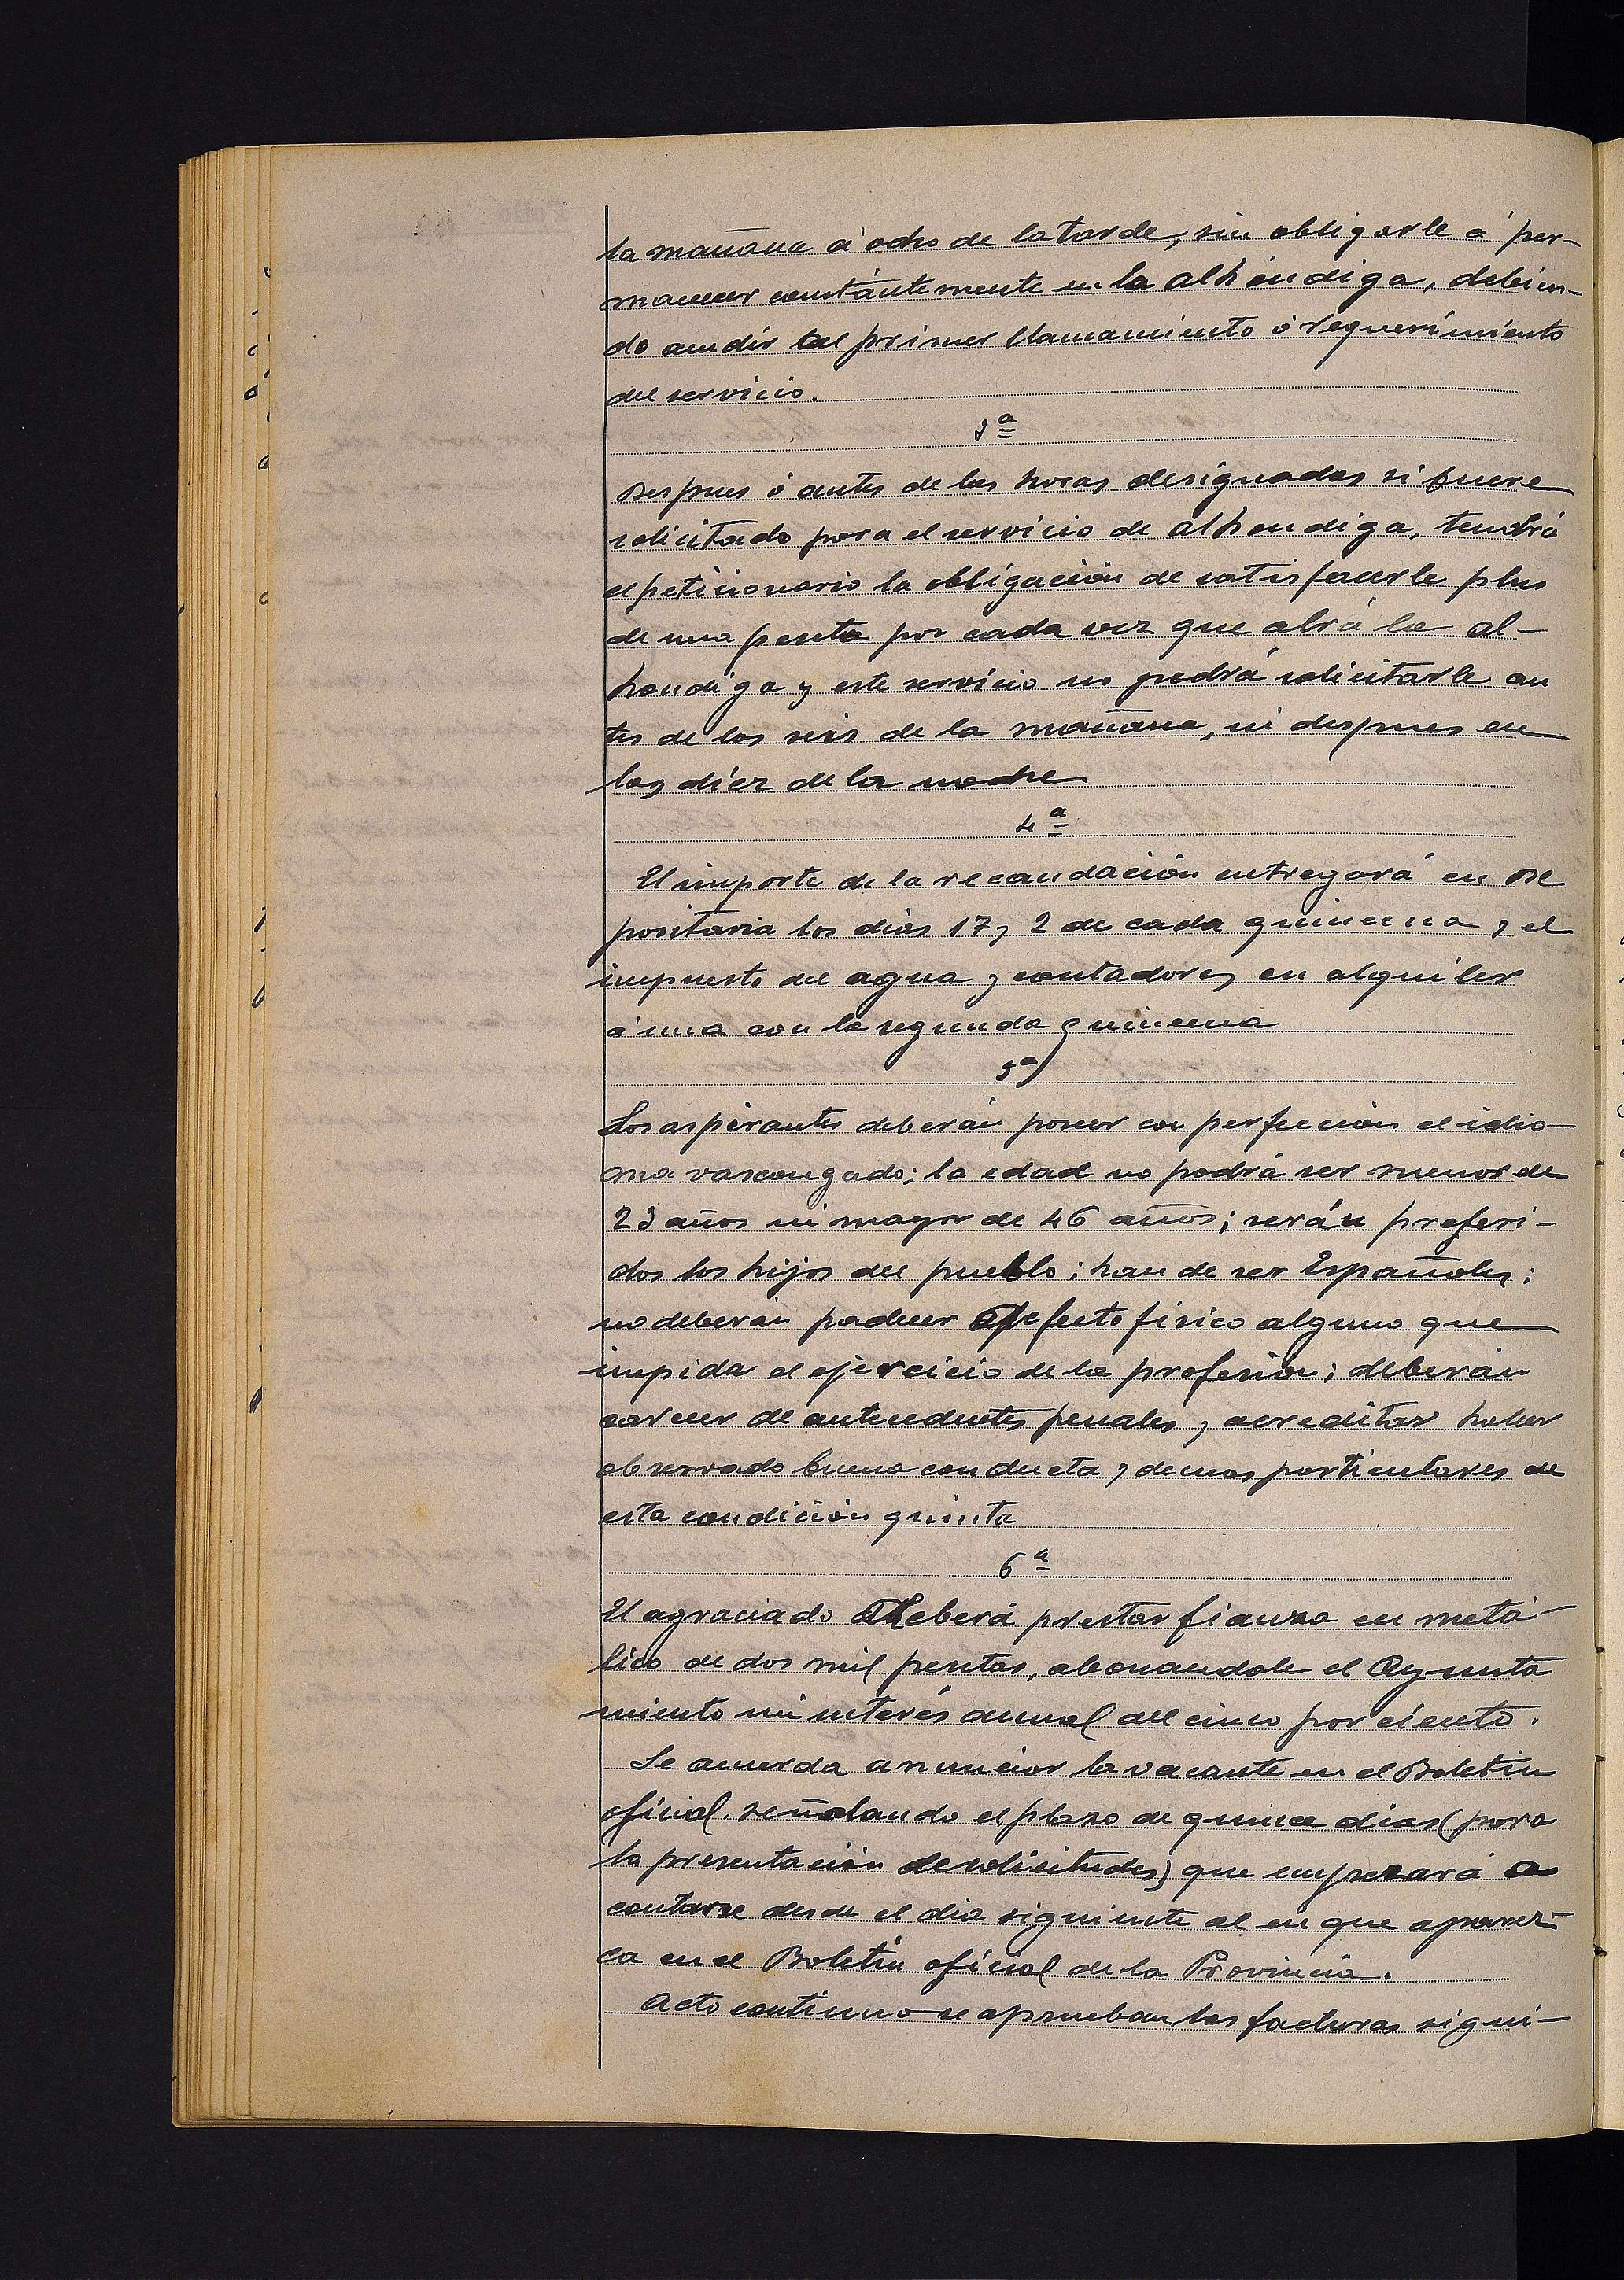 la mañana á ocho de la tarde, sin obligarle á per-
manecer constántemente en la alhóndiga, debien-
do acudir al primer llamamiento ó requerimiento
del servicio.
3ª
Despues ó antes de las horas designadas si fuere
solicitado para el servicio de alhondiga, tendrá
el peticionario la obligación de satisfacerle plus
de una peseta por cada vez que abrá la al-
hondiga y este servicio no podrá solicitarle an
tes de las seis de la mañana, ni despues en
las diez de la noche
4ª
El importe de la recaudación entregará en De
positaria los dias 17 y 2 de cada quincena y el
impuesto del agua y contadores en alquiler
á una con la segunda quincena
5ª
Los aspirantes deberán poseer con perfección el idio-
ma vascongado; la edad no podrá ser menor de
23 años ni mayor de 46 años; serán preferi-
dos los hijos del pueblo; han de ser Españoles;
no deberán padecer defecto fisico alguno que
impida el ejercicio de la profesión; deberán
carecer de antecedentes penales y acreditar haber
observado buena conducta y demas particulares de
esta condición quinta
6ª
El agraciado deberá prestar fianza en metá-
lico de dos mil pesetas, abonandole el Ayunta
miento un interés anual del cinco por ciento.
Se acuerda anunciar la vacante en el Boletin
oficial señalando el plazo de quince dias (para
la presentación de solicitudes) que empezará a
contarse desde el dia siguiente al en que aparez-
ca en el Boletin oficial de la Provincia.
Acto continuo se aprueban las facturas sigui-